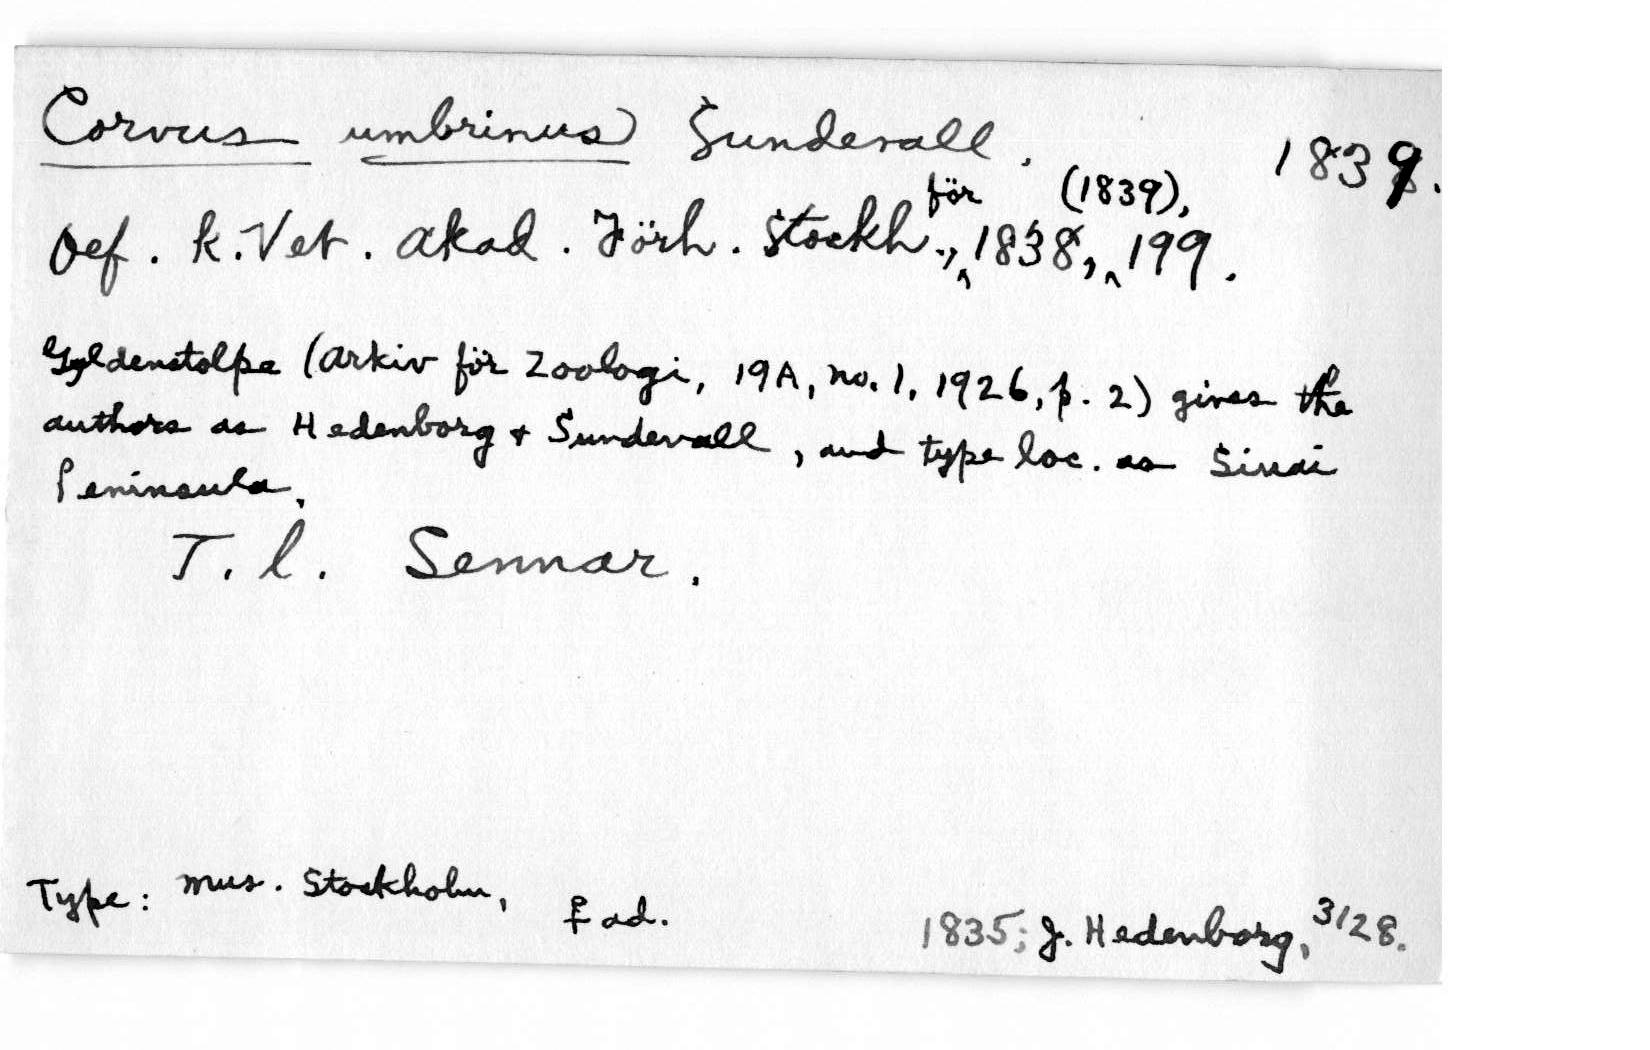 Corvus umbrinus Sundevall. 1839.
Oef. k. Vet. Akad. Förh. Stockh., för 1838, (1839), 199.
Gyldenstolpe (Arkiv för Zoologi, 19A, no. 1, 1926, p. 2) gives the
authors as Hedenborg + Sundevall, and type loc. as Sinai
Peninsula.
T. l. Sennar.
Type: Mus. Stockholm, ♀ ad. 1835; J. Hedenborg, 3/28.